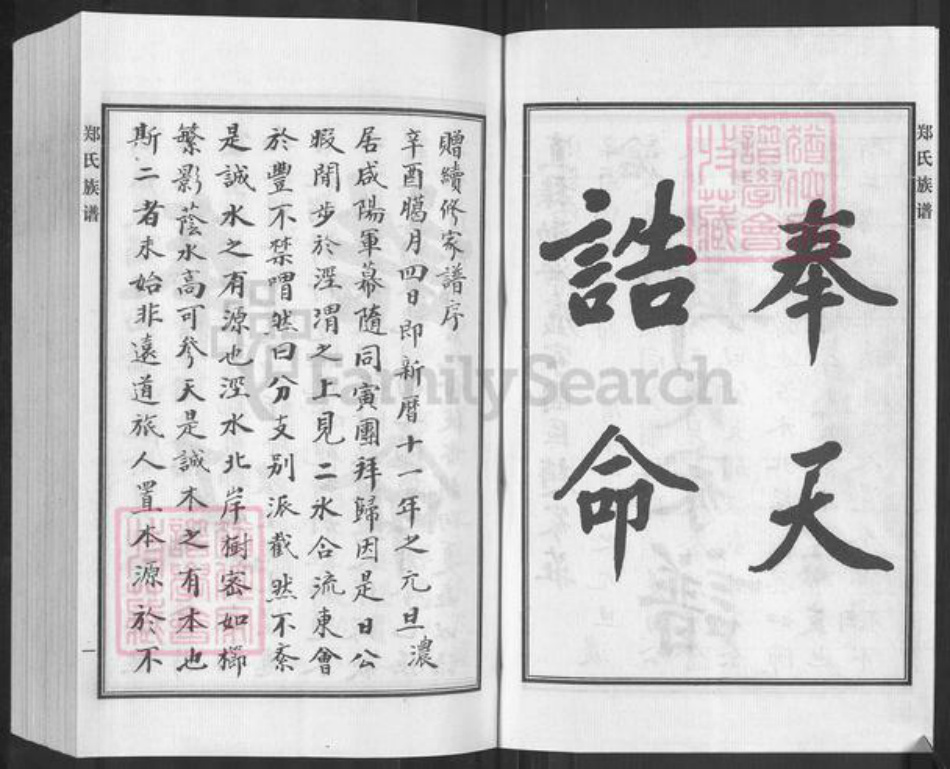 郑氏族谱
奉天
誥命
贈續修家譜序
辛酉臈月四日即新曆十一年之元旦濃
居咸陽軍幕隨同寅團拜歸因是日公
暇閒步於涇渭之上見二水合流東會
於豐不禁喟然曰分支別派截然不紊
是誠水之有源也涇水北岸樹密如櫛
繁影蔭水高可參天是誠木之有本也
斯二者未始非遠道旅人置本源於不
郑氏族谱
一
FamilySearch